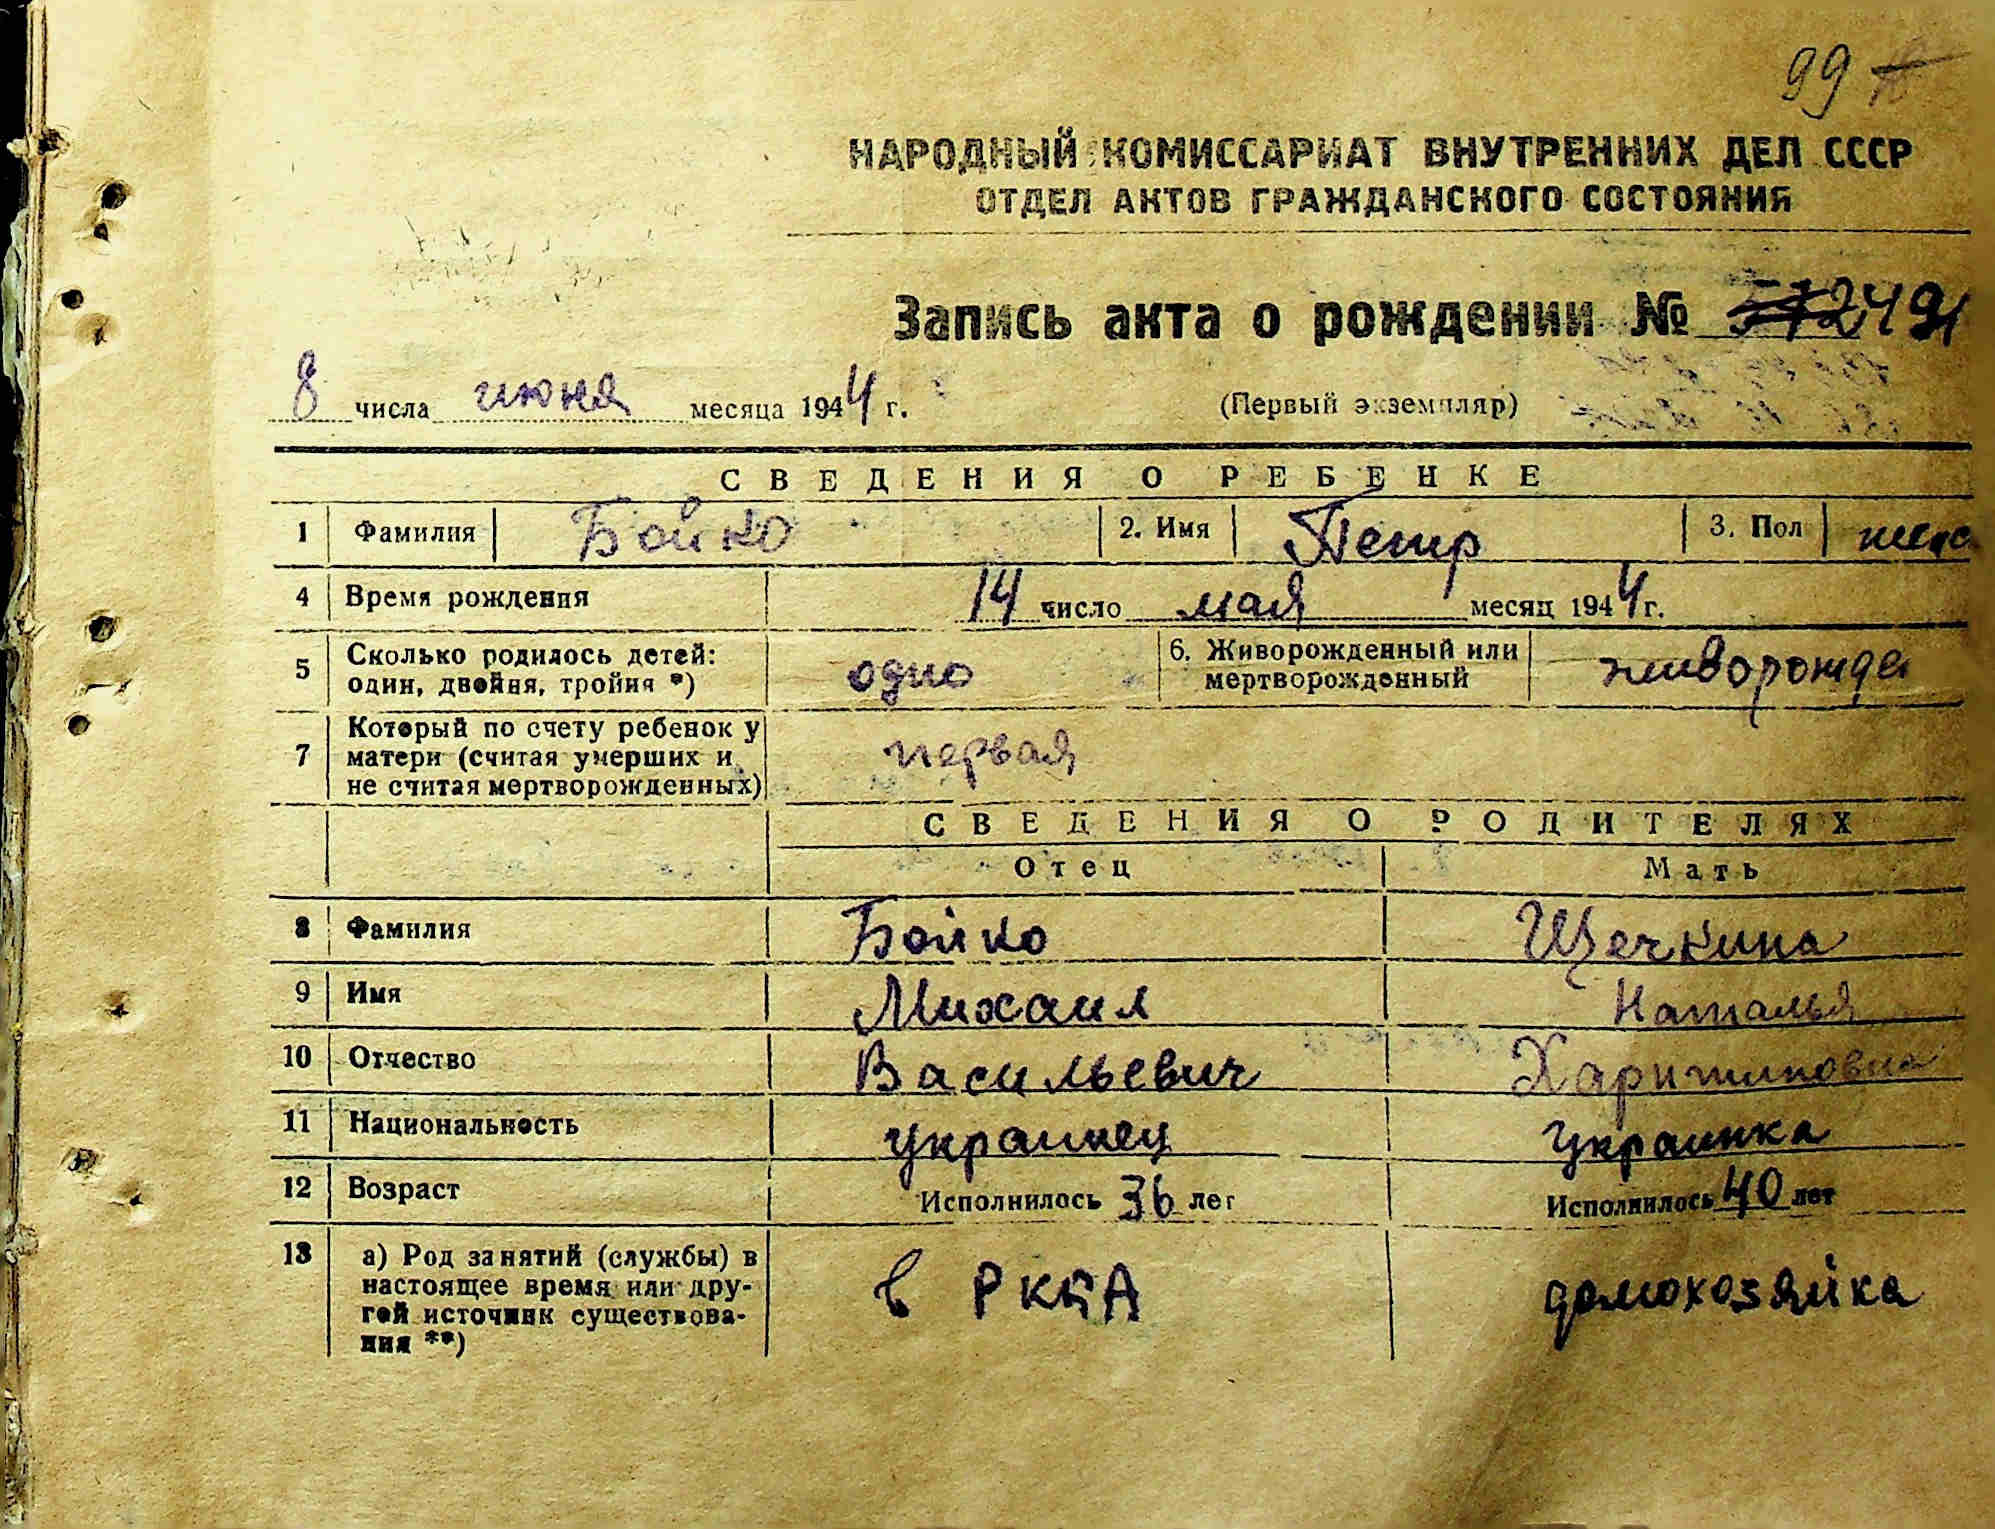 99
НАРОДНЫЙ КОМИССАРИАТ ВНУТРЕННИХ ДЕЛ СССР
ОТДЕЛ АКТОВ ГРАЖДАНСКОГО СОСТОЯНИЯ
Запись акта о рождении №
8 числа июня месяца 1944 г. (Первый экземпляр)
СВЕДЕНИЯ О РЕБЕНКЕ
1 Фамилия Бойко 2. Имя Петр 3. Пол
4 Время рождения 14 число мая месяц 1944 г.
5 Сколько родилось детей: один, двойня, тройня *) одно 6. Живорожденный или мертворожденный живорожде
7 Который по счету ребенок у матери (считая умерших и не считая мертворожденных) первая
СВЕДЕНИЯ О РОДИТЕЛЯХ
Отец Мать
8 Фамилия Бойко Щечкина
9 Имя Михаил Наталья
10 Отчество Васильевич Харитиновна
11 Национальность украинец украинка
12 Возраст Исполнилось 36 лет Исполнилось 40 лет
13 а) Род занятий (службы) в настоящее время или другой источник существования **) в РККА домохозяйка